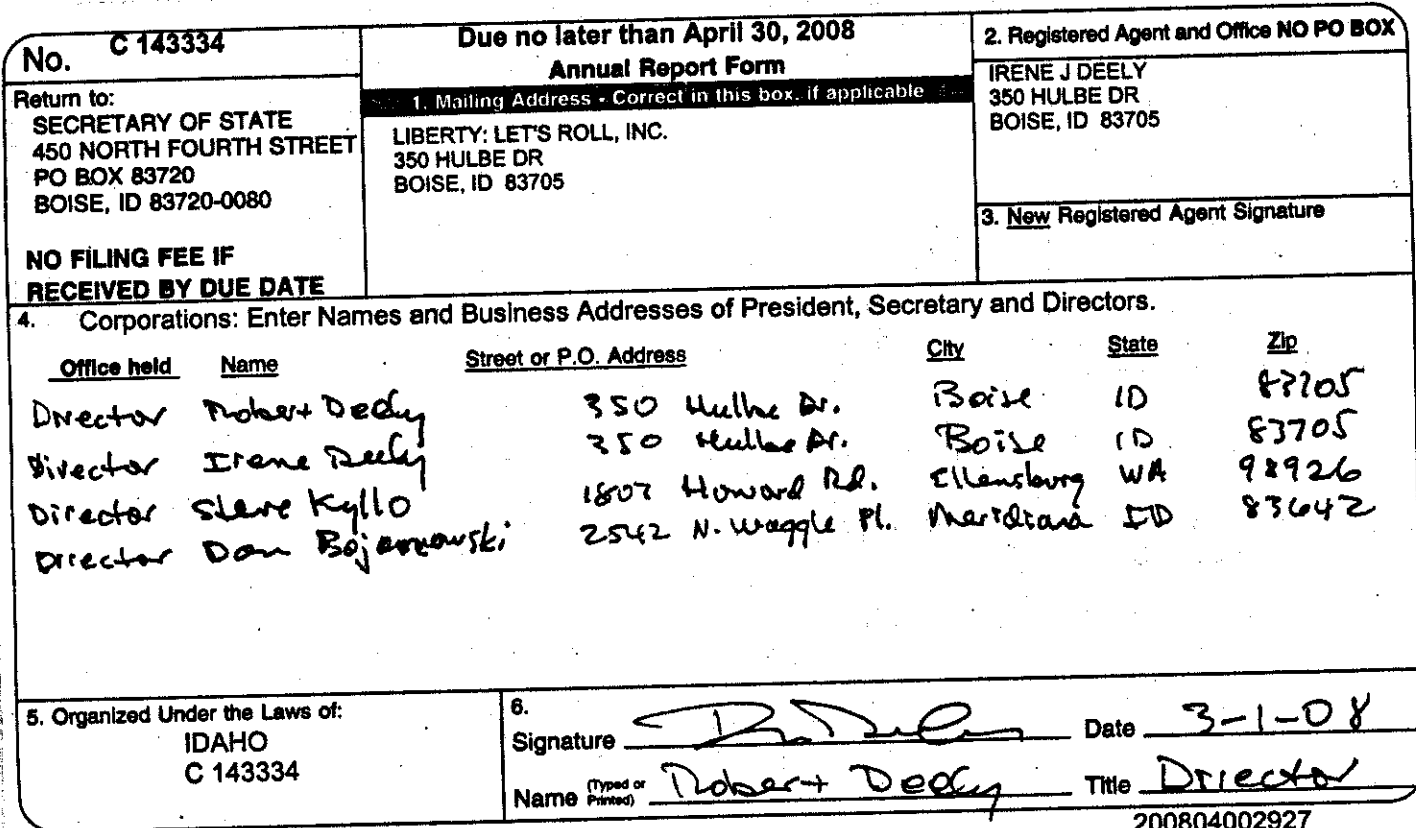 No. C 143334
Return to:
SECRETARY OF STATE
450 NORTH FOURTH STREET
PO BOX 83720
BOISE, ID 83720-0080
NO FILING FEE IF
RECEIVED BY DUE DATE
Due no later than April 30, 2008
Annual Report Form
1. Mailing Address - Correct in this box, if applicable
LIBERTY: LET'S ROLL, INC.
350 HULBE DR
BOISE, ID 83705
2. Registered Agent and Office NO PO BOX
IRENE J DEELY
350 HULBE DR
BOISE, ID 83705
3. New Registered Agent Signature
4. Corporations: Enter Names and Business Addresses of President, Secretary and Directors.
Office held Name Street or P.O. Address City State Zip
Director Robert Deely 350 Hulbe Dr. Boise ID 83705
Director Irene Deely 350 Hulbe Dr. Boise ID 83705
Director Steve Kyllo 1807 Howard Rd. Ellensburg WA 98926
Director Dan 2542 N. Waggle Pl. Meridian ID 83642
5. Organized Under the Laws of:
IDAHO
C 143334
6.
Signature Date 3-1-08
Name (Typed or Printed) Robert Deely Title Director
200804002927